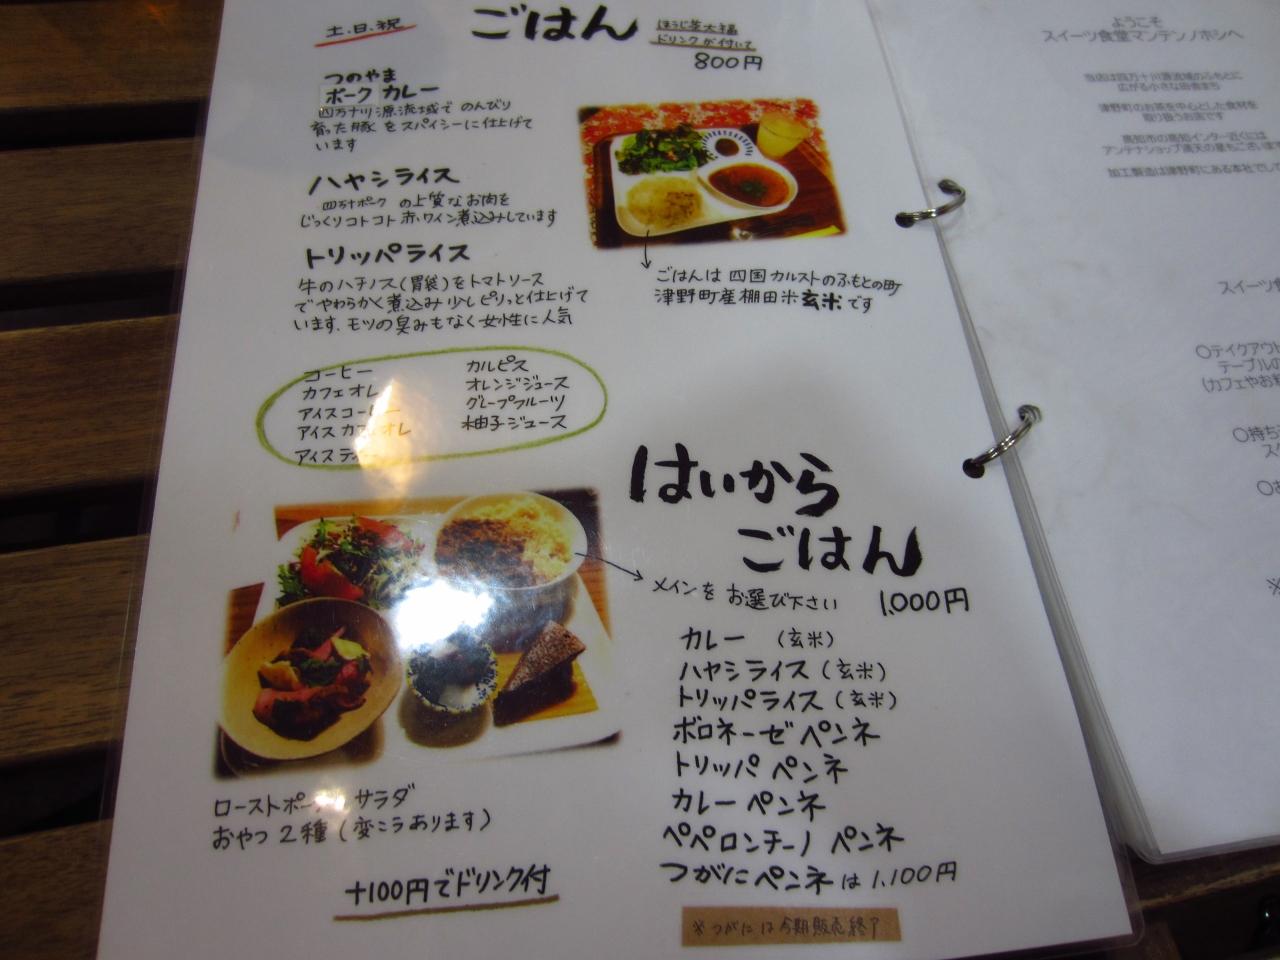 土.日.祝
ごはん
ほうじ茶大福
ドリンクが付いて
800円
つのやま
ポーク カレー
四万十川源流域で のんびり
育った豚 をスパイシーに仕上げて
います
ハヤシライス
四万十ポーク の上質なお肉を
じっくりコトコト 赤ワイン煮込みしています
トリッパライス
牛のハチノス(胃袋)をトマトソース
でやわらかく煮込み 少しピリッと仕上げて
います、モツの臭みもなく女性に人気
ごはんは 四国カルストのふもとの町
津野町産棚田米玄米です
コーヒー
カフェオレ
アイスコーヒー
アイスカフェオレ
アイスティー
カルピス
オレンジジュース
グレープフルーツ
柚子ジュース
はいから
ごはん
メインを お選び下さい 1,000円
カレー (玄米)
ハヤシライス (玄米)
トリッパライス (玄米)
ボロネーゼ ペンネ
トリッパ ペンネ
カレー ペンネ
ペペロンチーノ ペンネ
つがにペンネ は 1,100円
※つがに は 今期販売終了
ローストポーク サラダ
おやつ 2種 (変こうあります)
+100円でドリンク付
ようこそ
スイーツ食堂マンテンノホシへ
当店は四万十川源流域のふもとに
広がる小さな田舎まち
津野町のお茶を中心とした食材を
取り扱うお店です
高知市の高知インター近くには
アンテナショップ満天の星もございます
加工製造は津野町にある本社でして
スイーツ食
○テイクアウト
テーブルの
(カフェやお料
○持ち
ス
○お
※